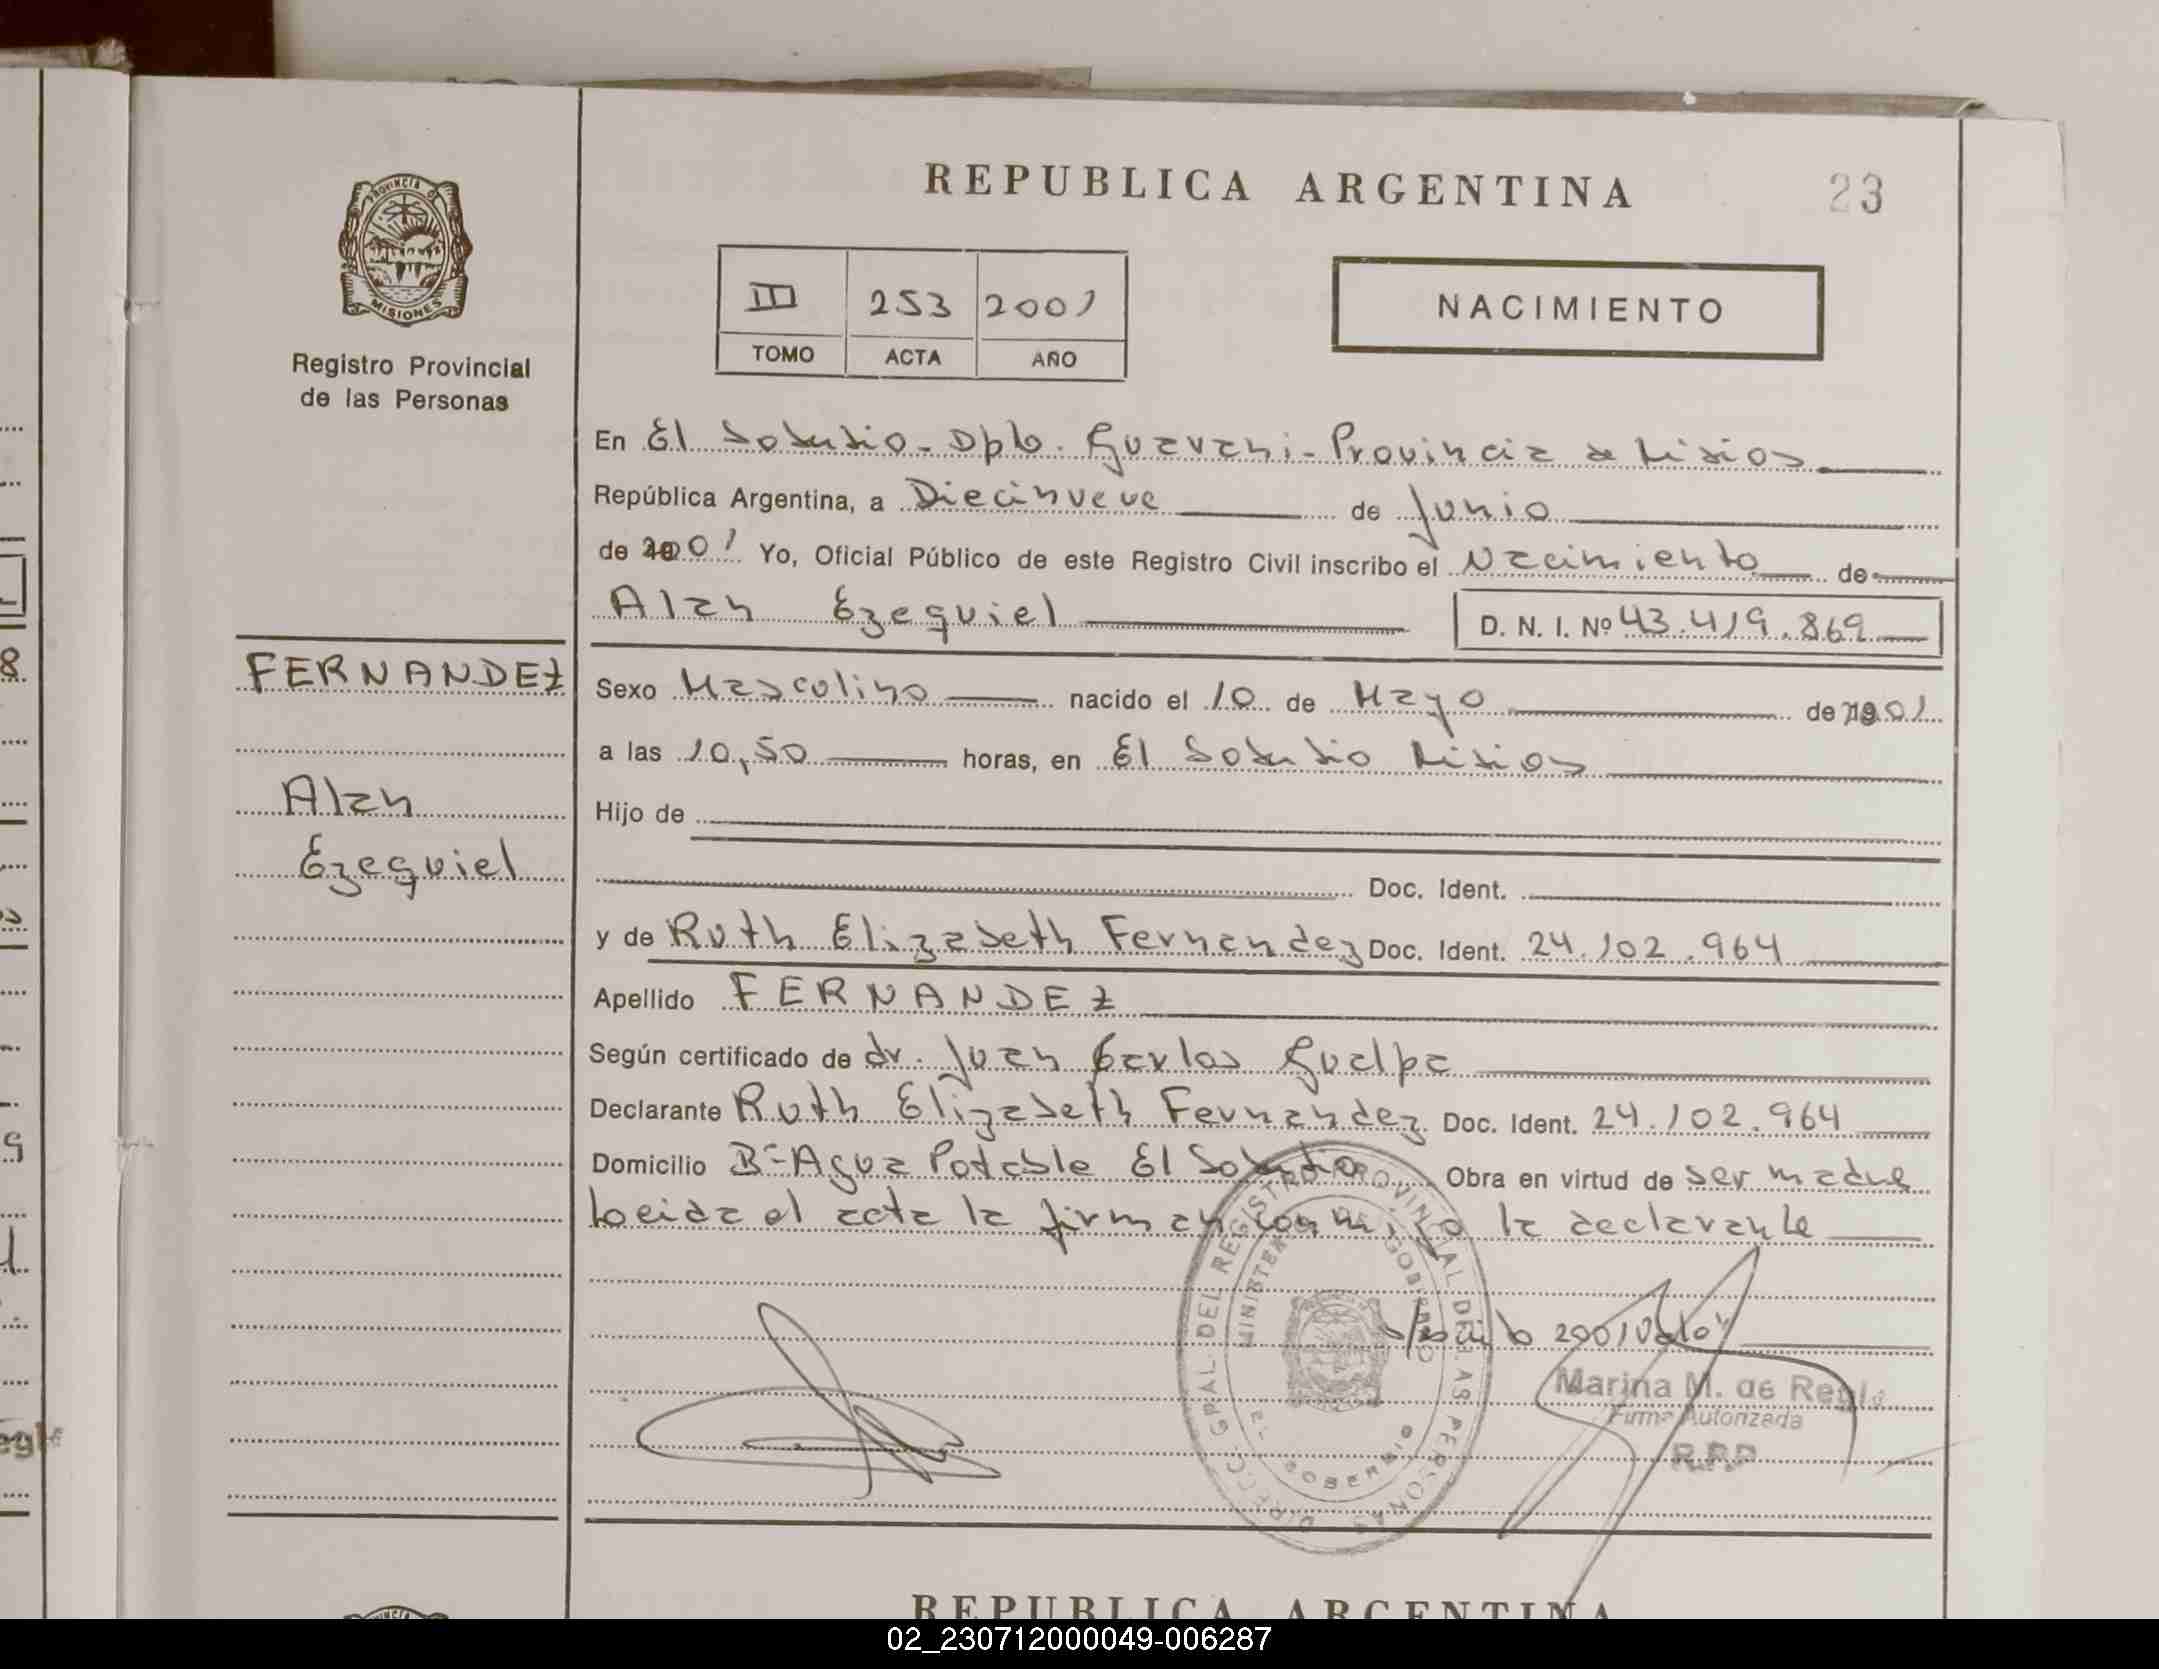 REPUBLICA ARGENTINA
23
PROVINCIA DE
MISIONES
Registro Provincial
de las Personas
III 253 2001
TOMO ACTA AÑO
NACIMIENTO
En El Soberbio - Dpto. Guarani - Provincia de Misiones
República Argentina, a Diecinueve de Junio
de 2001 Yo, Oficial Público de este Registro Civil inscribo el Nacimiento de
Alan Ezequiel D. N. I. Nº 43.419.869
FERNANDEZ
Alan
Ezequiel
Sexo Masculino nacido el 10 de Mayo de 2001
a las 10,50 horas, en El Soberbio Misiones
Hijo de
Doc. Ident.
y de Ruth Elizabeth Fernandez Doc. Ident. 24.102.964
Apellido FERNANDEZ
Según certificado de dr. Juan Carlos Guelpa
Declarante Ruth Elizabeth Fernandez Doc. Ident. 24.102.964
Domicilio Bº Agua Potable El Soberbio Obra en virtud de ser madre
Leida el acta la firman conmigo la declarante
2001 Vale
DIRECC. GRAL. DEL REGISTRO PROVINCIAL DE LAS PERSONAS
MINISTERIO DE GOBIERNO
EL SOBERBIO
Marina M. de Regle
Firma Autorizada
R.P.P
REPUBLICA ARGENTINA
02_230712000049-006287